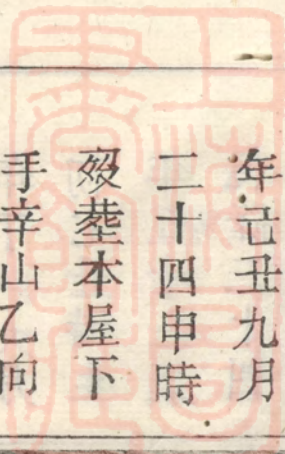 年己丑九月
二十四申時
殁塟本屋下
手辛山乙向